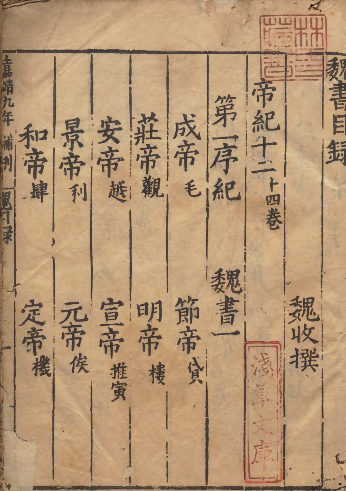 魏書目録
魏收撰
帝紀十二 十四卷
第一序紀 魏書一
成帝毛 節帝貸
莊帝觀 明帝樓
安帝越 宣帝推寅
景帝利 元帝俟
和帝肆 定帝機
嘉靖九年補刊
淺草文庫